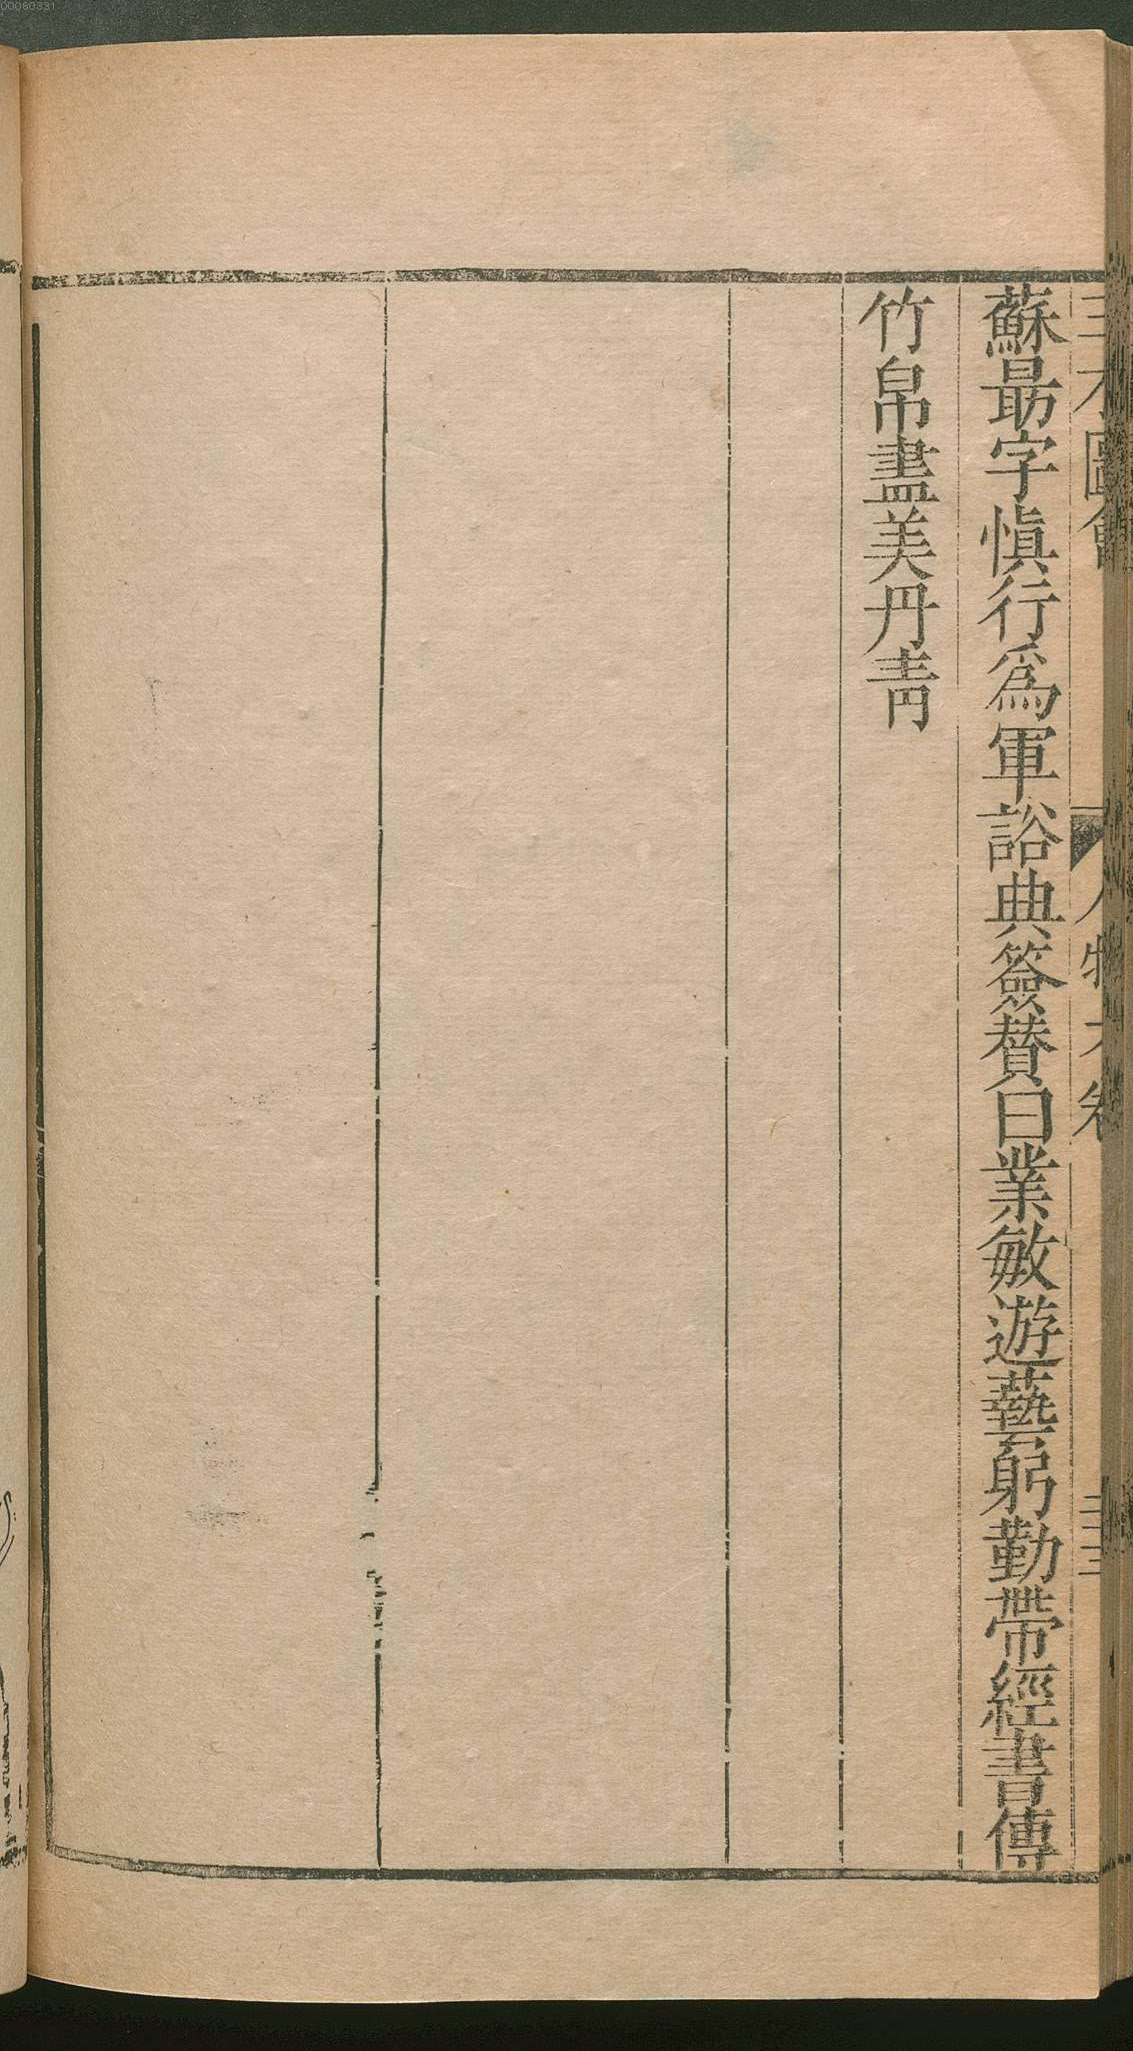 三才圖會 人物六卷 三三
蘇勗字慎行爲軍諮典簽賛曰業敏遊藝躬勤帶經書傳
竹帛畫美丹靑
00060331